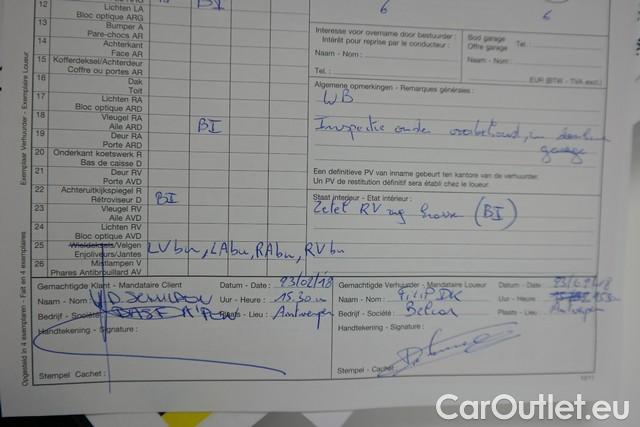 12 Lichten LA BI
Bloc optique ARG
13 Bumper A
Pare-chocs AR
14 Achterkant
Face AR
15 Kofferdeksel/Achterdeur
Coffre ou portes AR
16 Dak
Toit
17 Lichten RA
Bloc optique ARD
18 Vleugel RA
Aile ARD BI
19 Deur RA
Porte ARD
20 Onderkant koetswerk R
Bas de caisse D
21 Deur RV
Porte AVD
22 Achteruitkijkspiegel R
Rétroviseur D BI
23 Vleugel RV
Aile AVD
24 Lichten RV
Bloc optique AVD
25 Wieldeksels/Velgen
Enjoliveurs/Jantes LVbu, LAbu, RAbu, RVbu
26 Mistlampen V
Phares Antibrouillard AV
6 6
Interesse voor overname door bestuurder :
Intérêt pour reprise par le conducteur :
Naam - Nom :
Tel. :
Bod garage
Offre garage Tel.
Naam - Nom :
EUR (BTW - TVA excl.)
Algemene opmerkingen - Remarques générales :
WB
Inspectie onder
garage
Een definitieve PV van inname gebeurt ten kantore van de verhuurder.
Un PV de restitution définitif sera établi chez le loueur.
Staat interieur - Etat intérieur :
Zetel RV (BI)
Gemachtigde Klant - Mandataire Client
Datum - Date : 23/02/18
Naam - Nom
Uur - Heure : 15.30
Bedrijf - Société BASF A'PEN
Plaats - Lieu : Antwerpen
Handtekening - Signature :
Stempel Cachet :
Gemachtigde Verhuurder - Mandataire Loueur
Datum - Date
Naam - Nom : FILIP DK
Uur - Heure
Bedrijf - Société : Belcar
Plaats - Lieu : Antwerpen
Handtekening - Signature :
Stempel - Cachet
10/11
Opgesteld in 4 exemplaren - Fait en 4 exemplaires
Exemplaar Verhuurder - Exemplaire Loueur
CarOutlet.eu